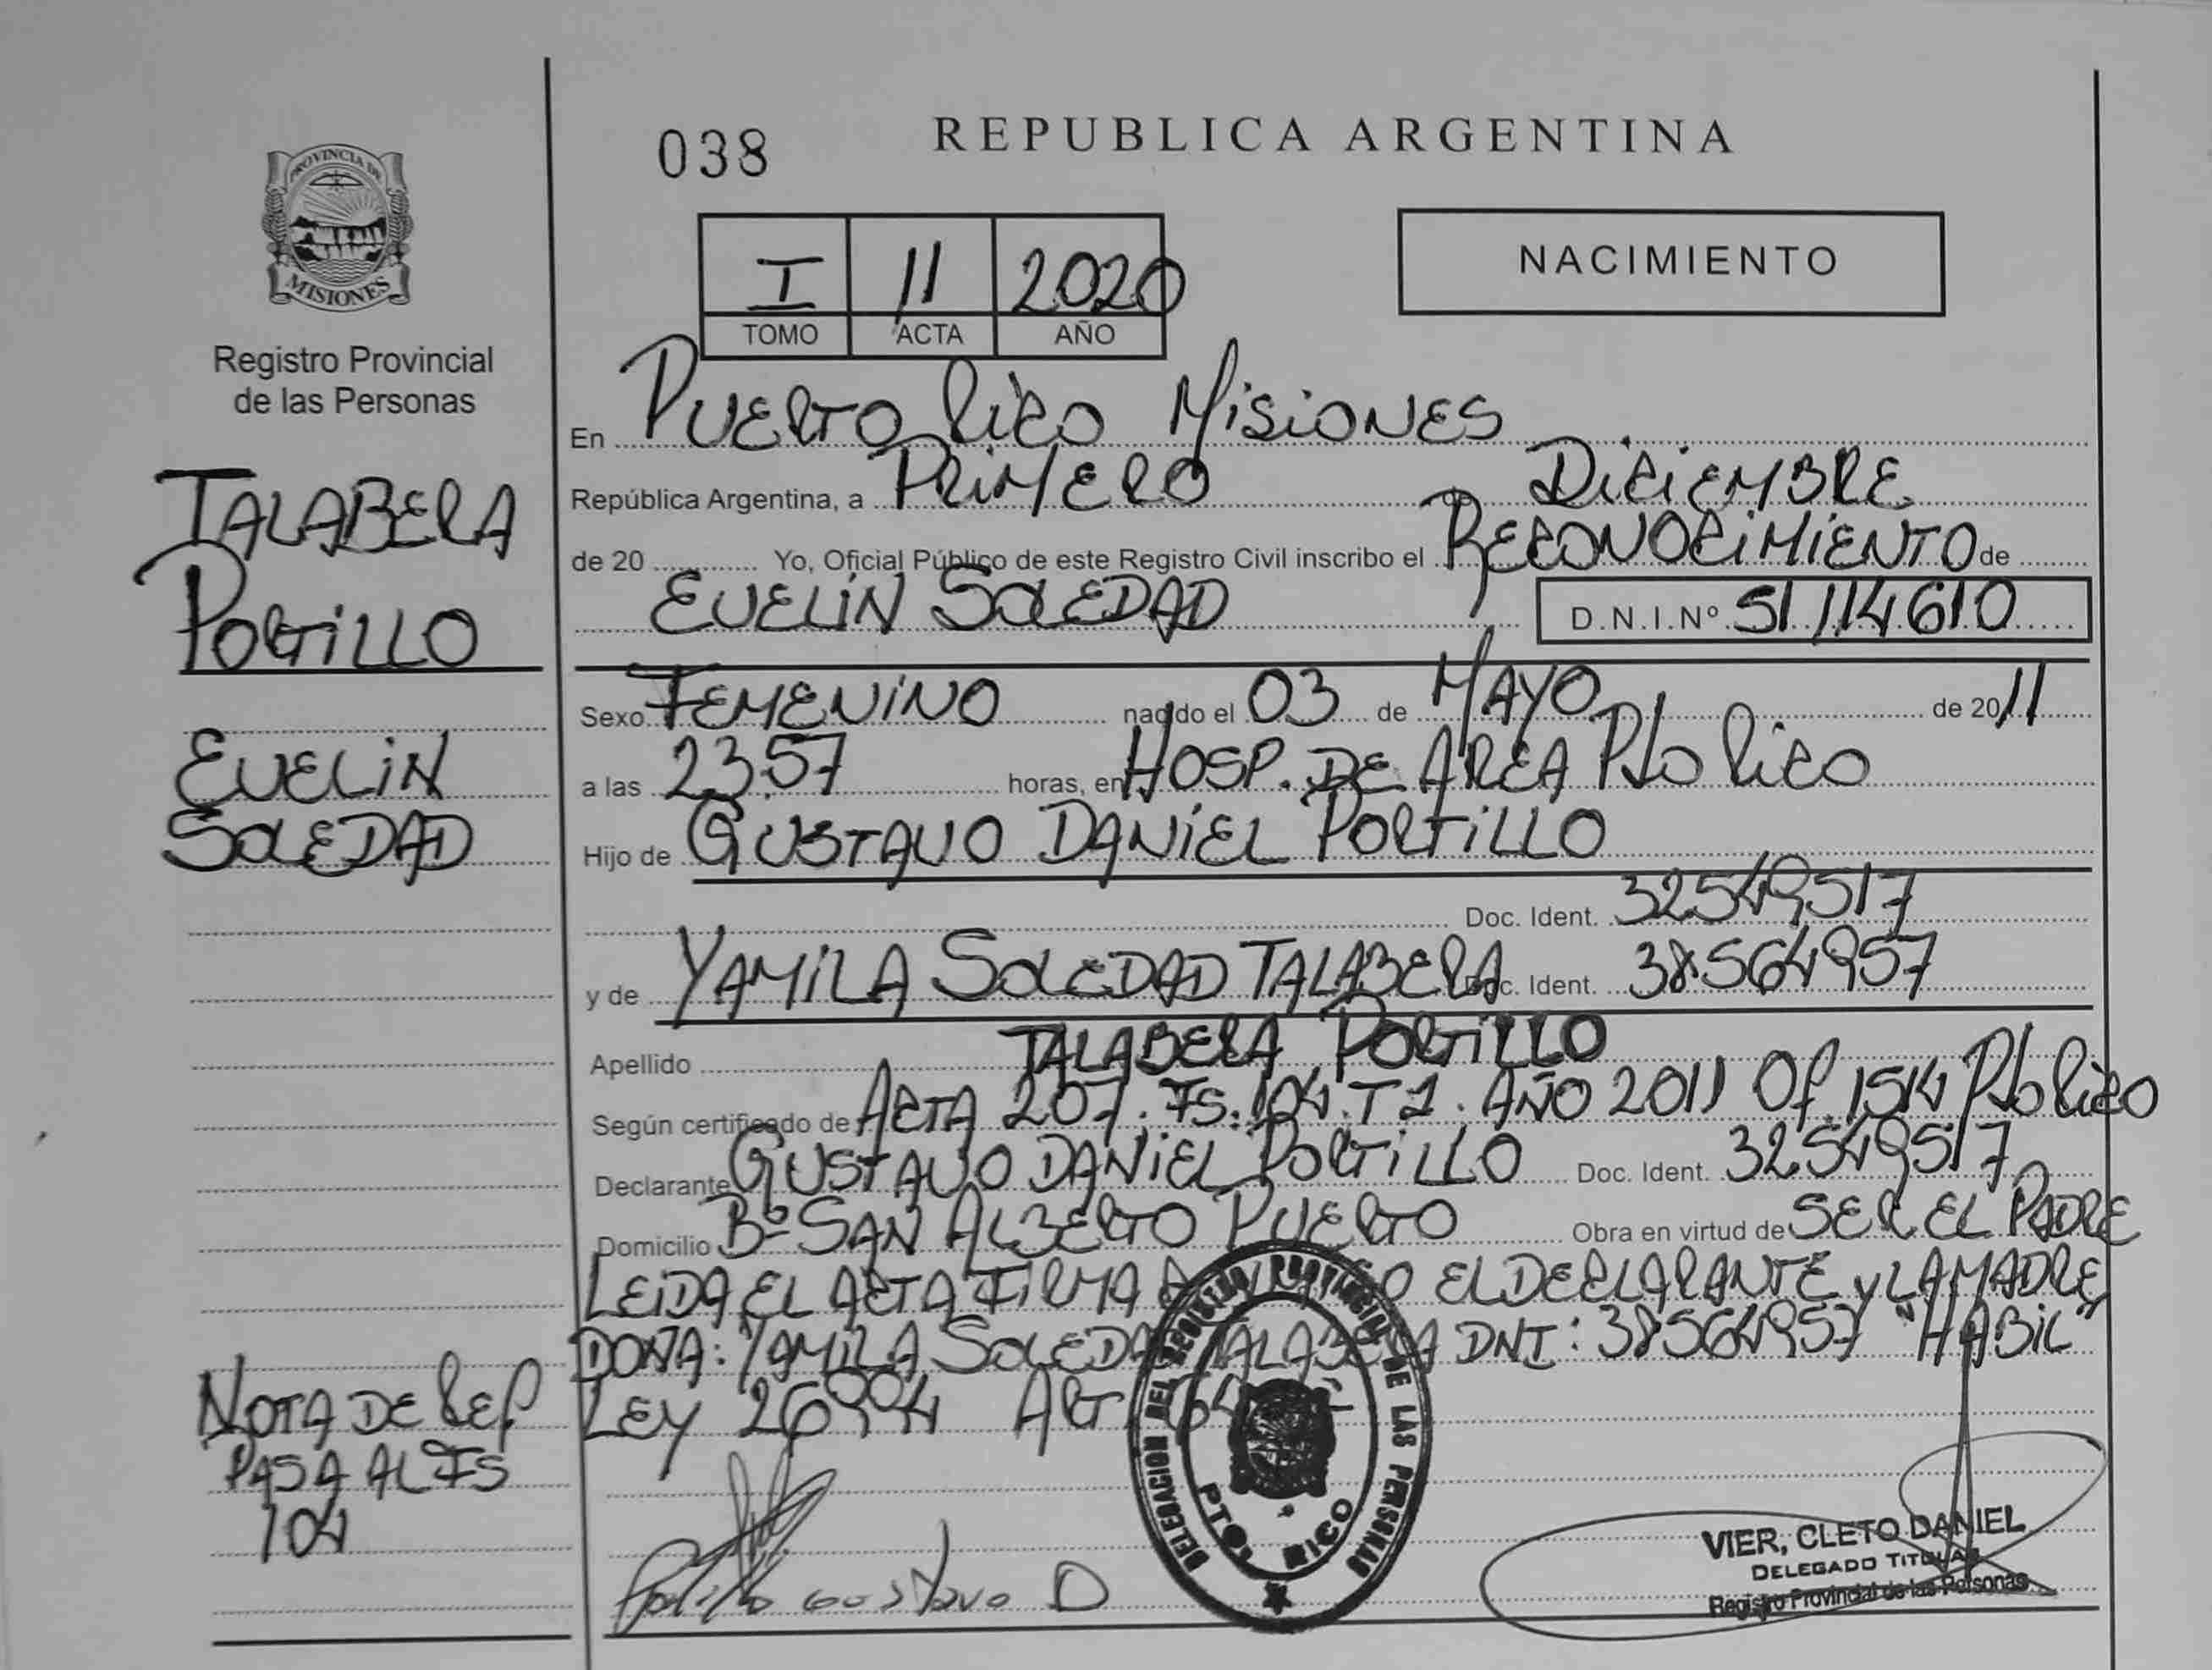 PROVINCIA DE
MISIONES
Registro Provincial
de las Personas
TALABERA
PORTILLO
EVELIN
SOLEDAD
NOTA DE REF
PASA AL FS
104
038 REPUBLICA ARGENTINA
I 11 2020
TOMO ACTA AÑO
NACIMIENTO
En PUERTO RICO MISIONES
República Argentina, a PRIMERO de DICIEMBRE
de 20 Yo, Oficial Público de este Registro Civil inscribo el RECONOCIMIENTO de
EVELIN SOLEDAD D.N.I.Nº 51.114.610
Sexo FEMENINO nacido el 03 de MAYO de 2011
a las 23:57 horas, en HOSP. DE AREA Pto RICO
Hijo de GUSTAVO DANIEL PORTILLO
Doc. Ident. 32549517
y de YAMILA SOLEDAD TALABERA Doc. Ident. 38564957
Apellido TALABERA PORTILLO
Según certificado de ACTA 207. FS. 104. T 1. AÑO 2011 Of. 1514 Pto RICO
Declarante GUSTAVO DANIEL PORTILLO Doc. Ident. 32549517
Domicilio Bº SAN ALBERTO PUERTO Obra en virtud de SER EL PADRE
LEIDA EL ACTA FIRMA EL DECLARANTE Y LA MADRE
DOÑA: YAMILA SOLEDAD TALABERA DNI: 38564957 "HABIL"
LEY 26994 ART 64
Portillo Gustavo D
DELEGACION DEL REGISTRO PROVINCIAL DE LAS PERSONAS
PTO. RICO
VIER, CLETO DANIEL
DELEGADO TITULAR
Registro Provincial de las Personas